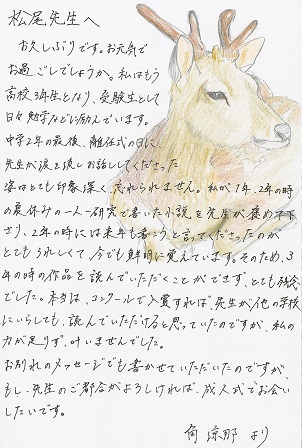 松尾先生へ
お久しぶりです。お元気で
お過ごしでしょうか。私はもう
高校3年生となり、受験生として
日々勉学などに励んでいます。
中学2年の最後、離任式の日に、
先生が涙を流しお話ししてくださった
姿はとても印象深く、忘れられません。私が1年、2年の時
の夏休みの一人一研究で書いた小説を先生が褒め下
さり、2年の時には来年も書こうと言ってくださったのが
とてもうれしくて、今でも鮮明に覚えています。そのため、3
年の時の作品を読んでいただくことができず、とても残念
でした。本当は、コンクールで入賞すれば、先生が他の学校
にいらしても、読んでいただけると思っていたのですが、私の
力が足りず、叶いませんでした。
お別れのメッセージでも書かせていただいたのですが、
もし、先生のご都合がよろしければ、成人式でお会い
したいです。
角 涼那 より